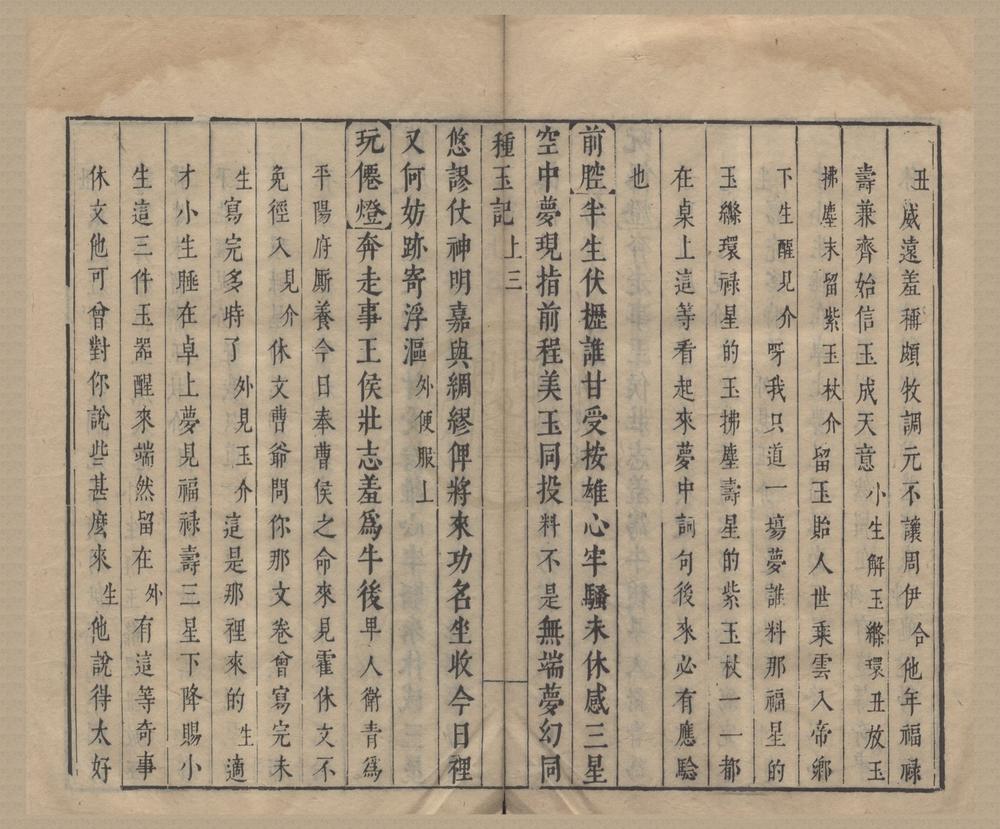 丑 威遠羞稱頗牧調元不讓周伊 合 他年福祿
壽兼齊始信玉成天意 小生解玉縧環丑放玉
拂塵末留紫玉杖介 留玉貽人世乘雲入帝鄉
下 生醒見介 呀我只道一場夢誰料那福星的
玉縧環祿星的玉拂塵壽星的紫玉杖一一都
在桌上這等看起來夢中詞句後來必有應驗
也
前腔 半生伏櫪誰甘受按雄心牢騷未休感三星
空中夢現指前程美玉同投料不是無端夢幻同
種玉記 上 三
悠謬仗神明嘉與綢繆俾將來功名坐收今日裡
又何妨跡寄浮漚 外便服上
玩僊燈 奔走事王侯壯志羞爲牛後 卑人衛青爲
平陽府厮養今日奉曹侯之命來見霍休文不
免徑入 見介 休文曹爺問你那文卷曾寫完未
生 寫完多時了 外見玉介 這是那裡來的 生 適
才小生睡在卓上夢見福祿壽三星下降賜小
生這三件玉器醒來端然留在 外 有這等奇事
休文他可曾對你說些甚麼來 生 他說得太好